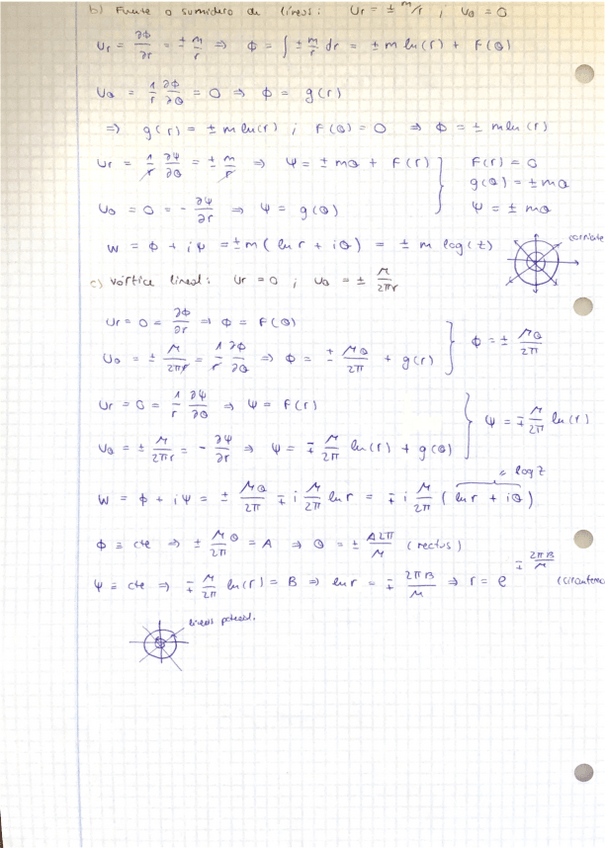 b) Fuente o sumidero de líneas: Ur = ± m/r ; Uθ = 0
Ur = ∂ϕ/∂r = ± m/r ⇒ ϕ = ∫ ± m/r dr = ± m ln(r) + F(θ)
Uθ = 1/r ∂ϕ/∂θ = 0 ⇒ ϕ = g(r)
⇒ g(r) = ± m ln(r) ; F(θ) = 0 ⇒ ϕ = ± m ln(r)
Ur = 1/r ∂ψ/∂θ = ± m/r ⇒ ψ = ± mθ + F(r)
F(r) = 0
g(θ) = ± mθ
Uθ = 0 = - ∂ψ/∂r ⇒ ψ = g(θ)
ψ = ± mθ
W = ϕ + iψ = ± m (ln r + iθ) = ± m log(z)
corriente
c) vórtice lineal: Ur = 0 ; Uθ = ± M/2πr
Ur = 0 = ∂ϕ/∂r ⇒ ϕ = F(θ)
Uθ = ± M/2πr = 1/r ∂ϕ/∂θ ⇒ ϕ = ± Mθ/2π + g(r)
ϕ = ± Mθ/2π
Ur = 0 = 1/r ∂ψ/∂θ ⇒ ψ = F(r)
Uθ = ± M/2πr = - ∂ψ/∂r ⇒ ψ = ∓ M/2π ln(r) + g(θ)
ψ = ∓ M/2π ln(r)
= log z
W = ϕ + iψ = ± Mθ/2π ∓ i M/2π ln r = ∓ i M/2π (ln r + iθ)
ϕ ≡ cte ⇒ ± Mθ/2π = A ⇒ θ = ± A2π/M (rectas)
ψ ≡ cte ⇒ ∓ M/2π ln(r) = B ⇒ ln r = ∓ 2πB/M ⇒ r = e^(∓ 2πB/M)
líneas potencial.